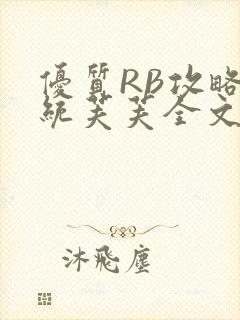 優質RB攻略
統芙芙全文
沐飛塵